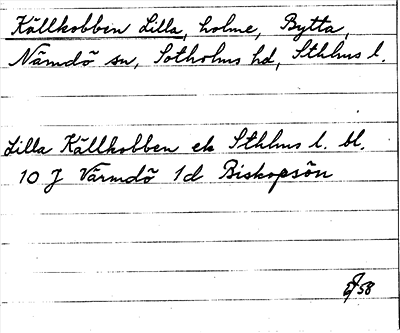 Källkobben Lilla, holme, Bytta,
Nämdö sn, Sotholms hd, Sthlms l.
Lilla Källkobben ek Sthlms l. bl.
10 J Värmdö 1d Biskopsön
58